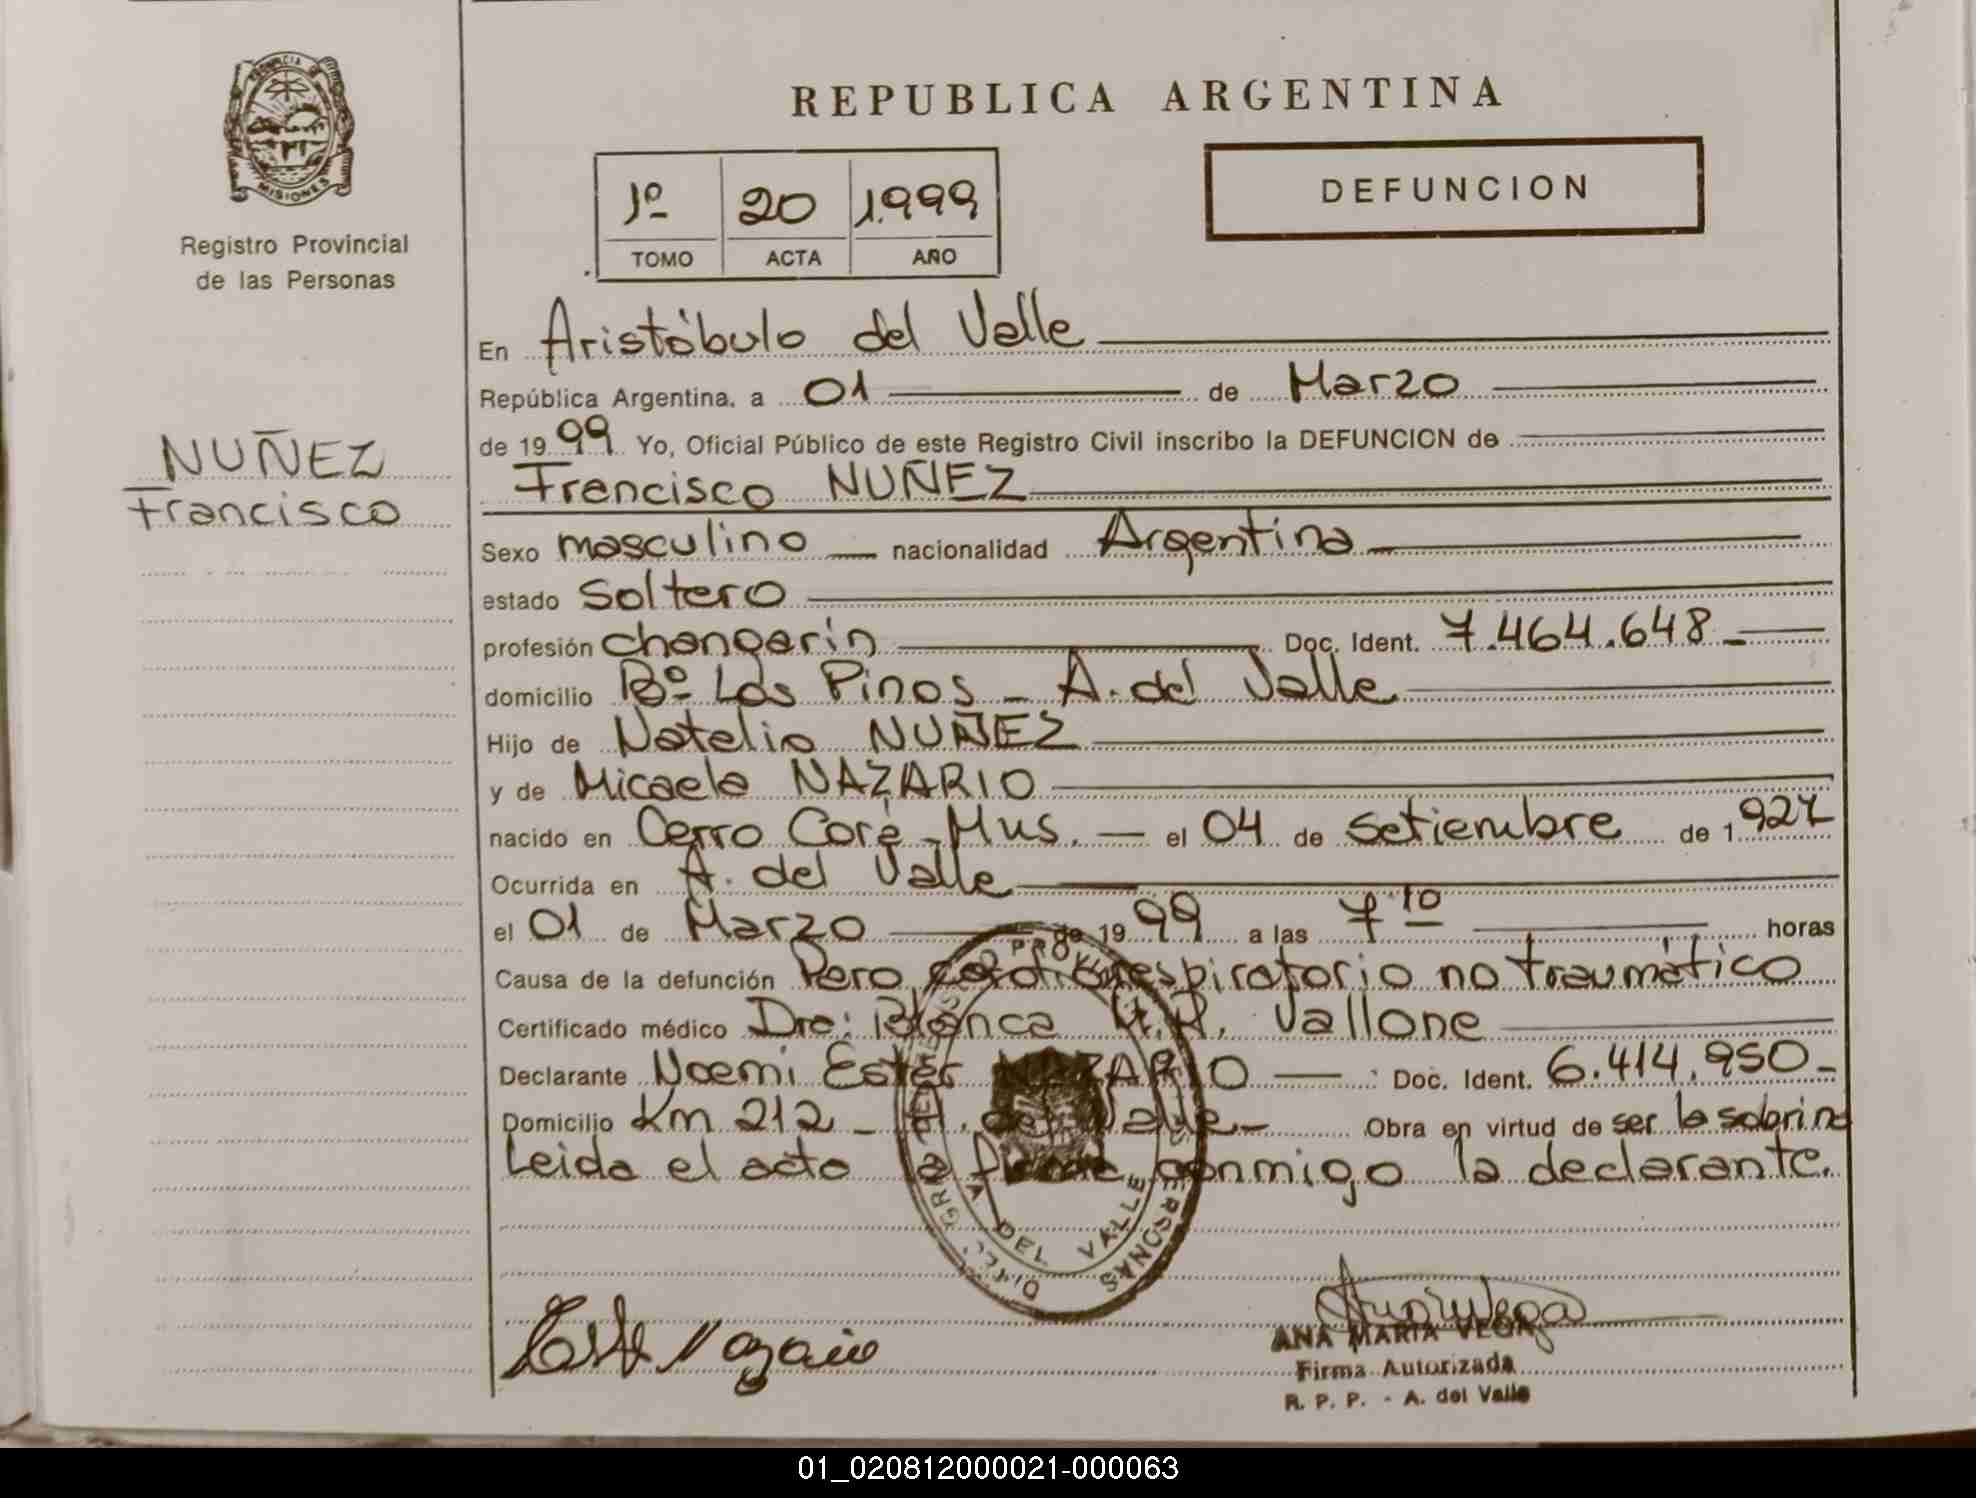 PROVINCIA DE
MISIONES
Registro Provincial
de las Personas
NUÑEZ
Francisco
REPUBLICA ARGENTINA
1º 20 1.999
TOMO ACTA AÑO
DEFUNCION
En Aristóbulo del Valle
República Argentina, a 01 de Marzo
de 1999 Yo, Oficial Público de este Registro Civil inscribo la DEFUNCION de
Francisco NUÑEZ
Sexo masculino nacionalidad Argentina
estado Soltero
profesión changarin Doc. Ident. 7.464.648
domicilio Bº Los Pinos - A. del Valle
Hijo de Natalio NUÑEZ
y de Micaela NAZARIO
nacido en Cerro Corá - Mns. el 04 de Setiembre de 1927
Ocurrida en A. del Valle
el 01 de Marzo de 1999 a las 7 10 horas
Causa de la defunción Paro cardiorespiratorio no traumático
Certificado médico Dra: Blanca Vallone
Declarante Noemi Ester NAZARIO Doc. Ident. 6.414.950
Domicilio Km 212 - A. del Valle - Obra en virtud de ser la sobrina
Leida el acta la firma conmigo la declarante.
A. DEL VALLE
PERSONAS
Ester Nazario
ANA MARIA VEGA
Firma Autorizada
R. P. P. - A. del Valle
01_020812000021-000063